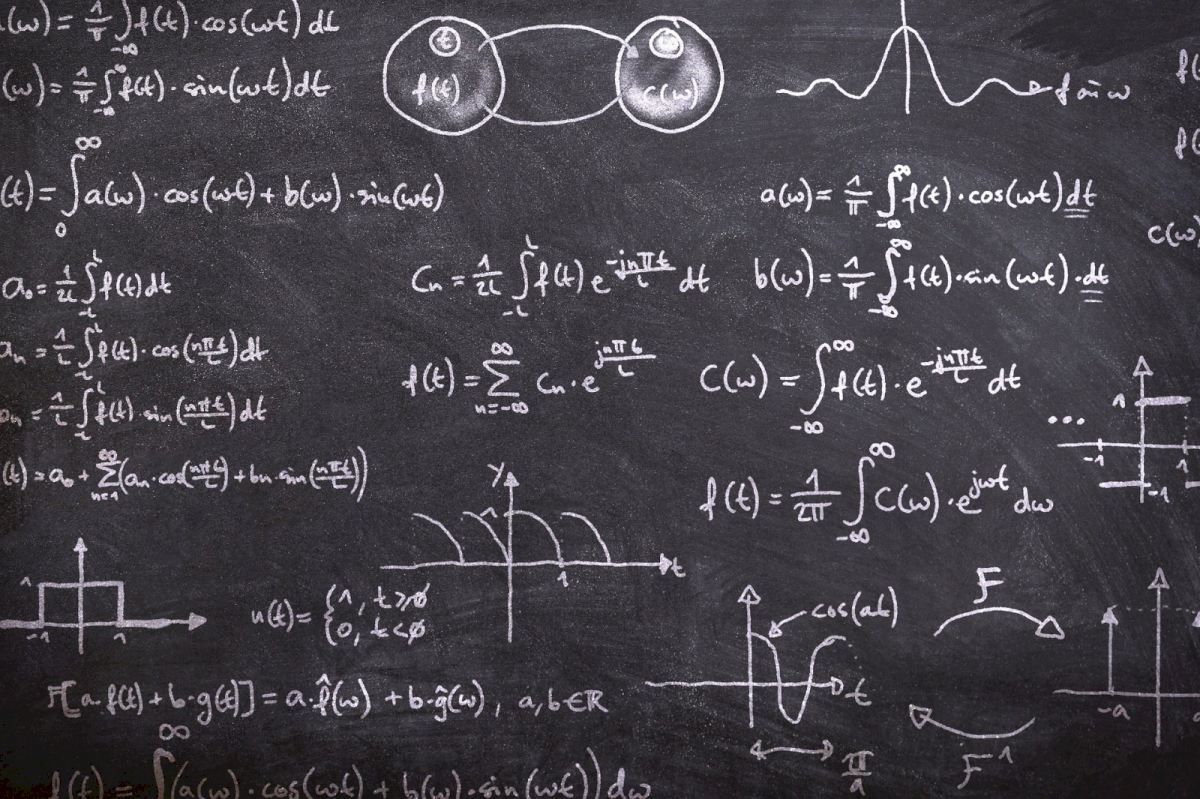 (ω) = 1/π ∫_{-∞} f(t)·cos(ωt) dt
(ω) = 1/π ∫_{-∞}^{∞} f(t)·sin(ωt) dt
t
f(t)
ω
c(ω)
f̂ in ω
f(
f(
(t) = ∫_0^∞ a(ω)·cos(ωt) + b(ω)·sin(ωt)
a(ω) = 1/π ∫_{-∞}^{∞} f(t)·cos(ωt) dt
c(ω)
a₀ = 1/2L ∫_{-L}^{L} f(t) dt
Cn = 1/2L ∫_{-L}^{L} f(t) e^{-jnπt/L} dt
b(ω) = 1/π ∫_{-∞}^{∞} f(t)·sin(ωt)·dt
an = 1/L ∫_{-L}^{L} f(t)·cos(nπt/L) dt
f(t) = ∑_{n=-∞}^{∞} Cn·e^{jnπt/L}
C(ω) = ∫_{-∞}^{∞} f(t)·e^{-jnπt/L} dt
bn = 1/L ∫_{-L}^{L} f(t)·sin(nπt/L) dt
...
1
-1
1
-1
(t) = a₀ + ∑_{n=1}^{∞} (an·cos(nπt/L) + bn·sin(nπt/L))
f(t) = 1/2π ∫_{-∞}^{∞} C(ω)·e^{jωt} dω
y
1
1
t
1
-1
1
u(t) = {1, t≥0
{0, t<0
cos(at)
t
π/a
F
F⁻¹
-a
F[a·f(t) + b·g(t)] = a·f̂(ω) + b·ĝ(ω), a,b∈ℝ
f(t) = ∫^∞ (a(ω)·cos(ωt) + b(ω)·sin(ωt)) dω